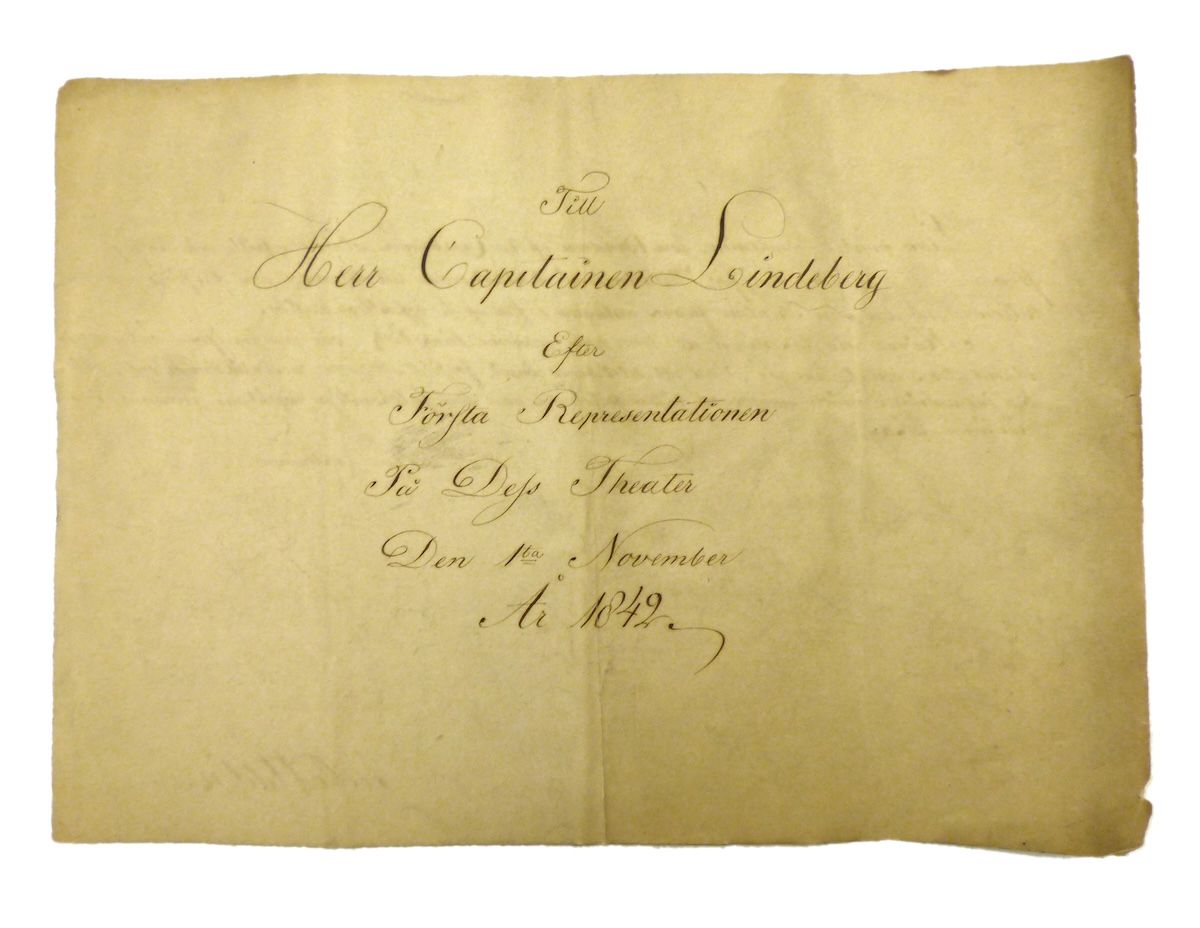 Till
Herr Capitainen Lindeberg
Efter
Första Representationen
På Dess Theater
Den 1ta November
År 1842.